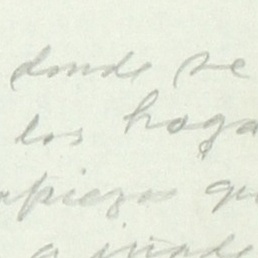 donde se
los hoga
mpiezas qu